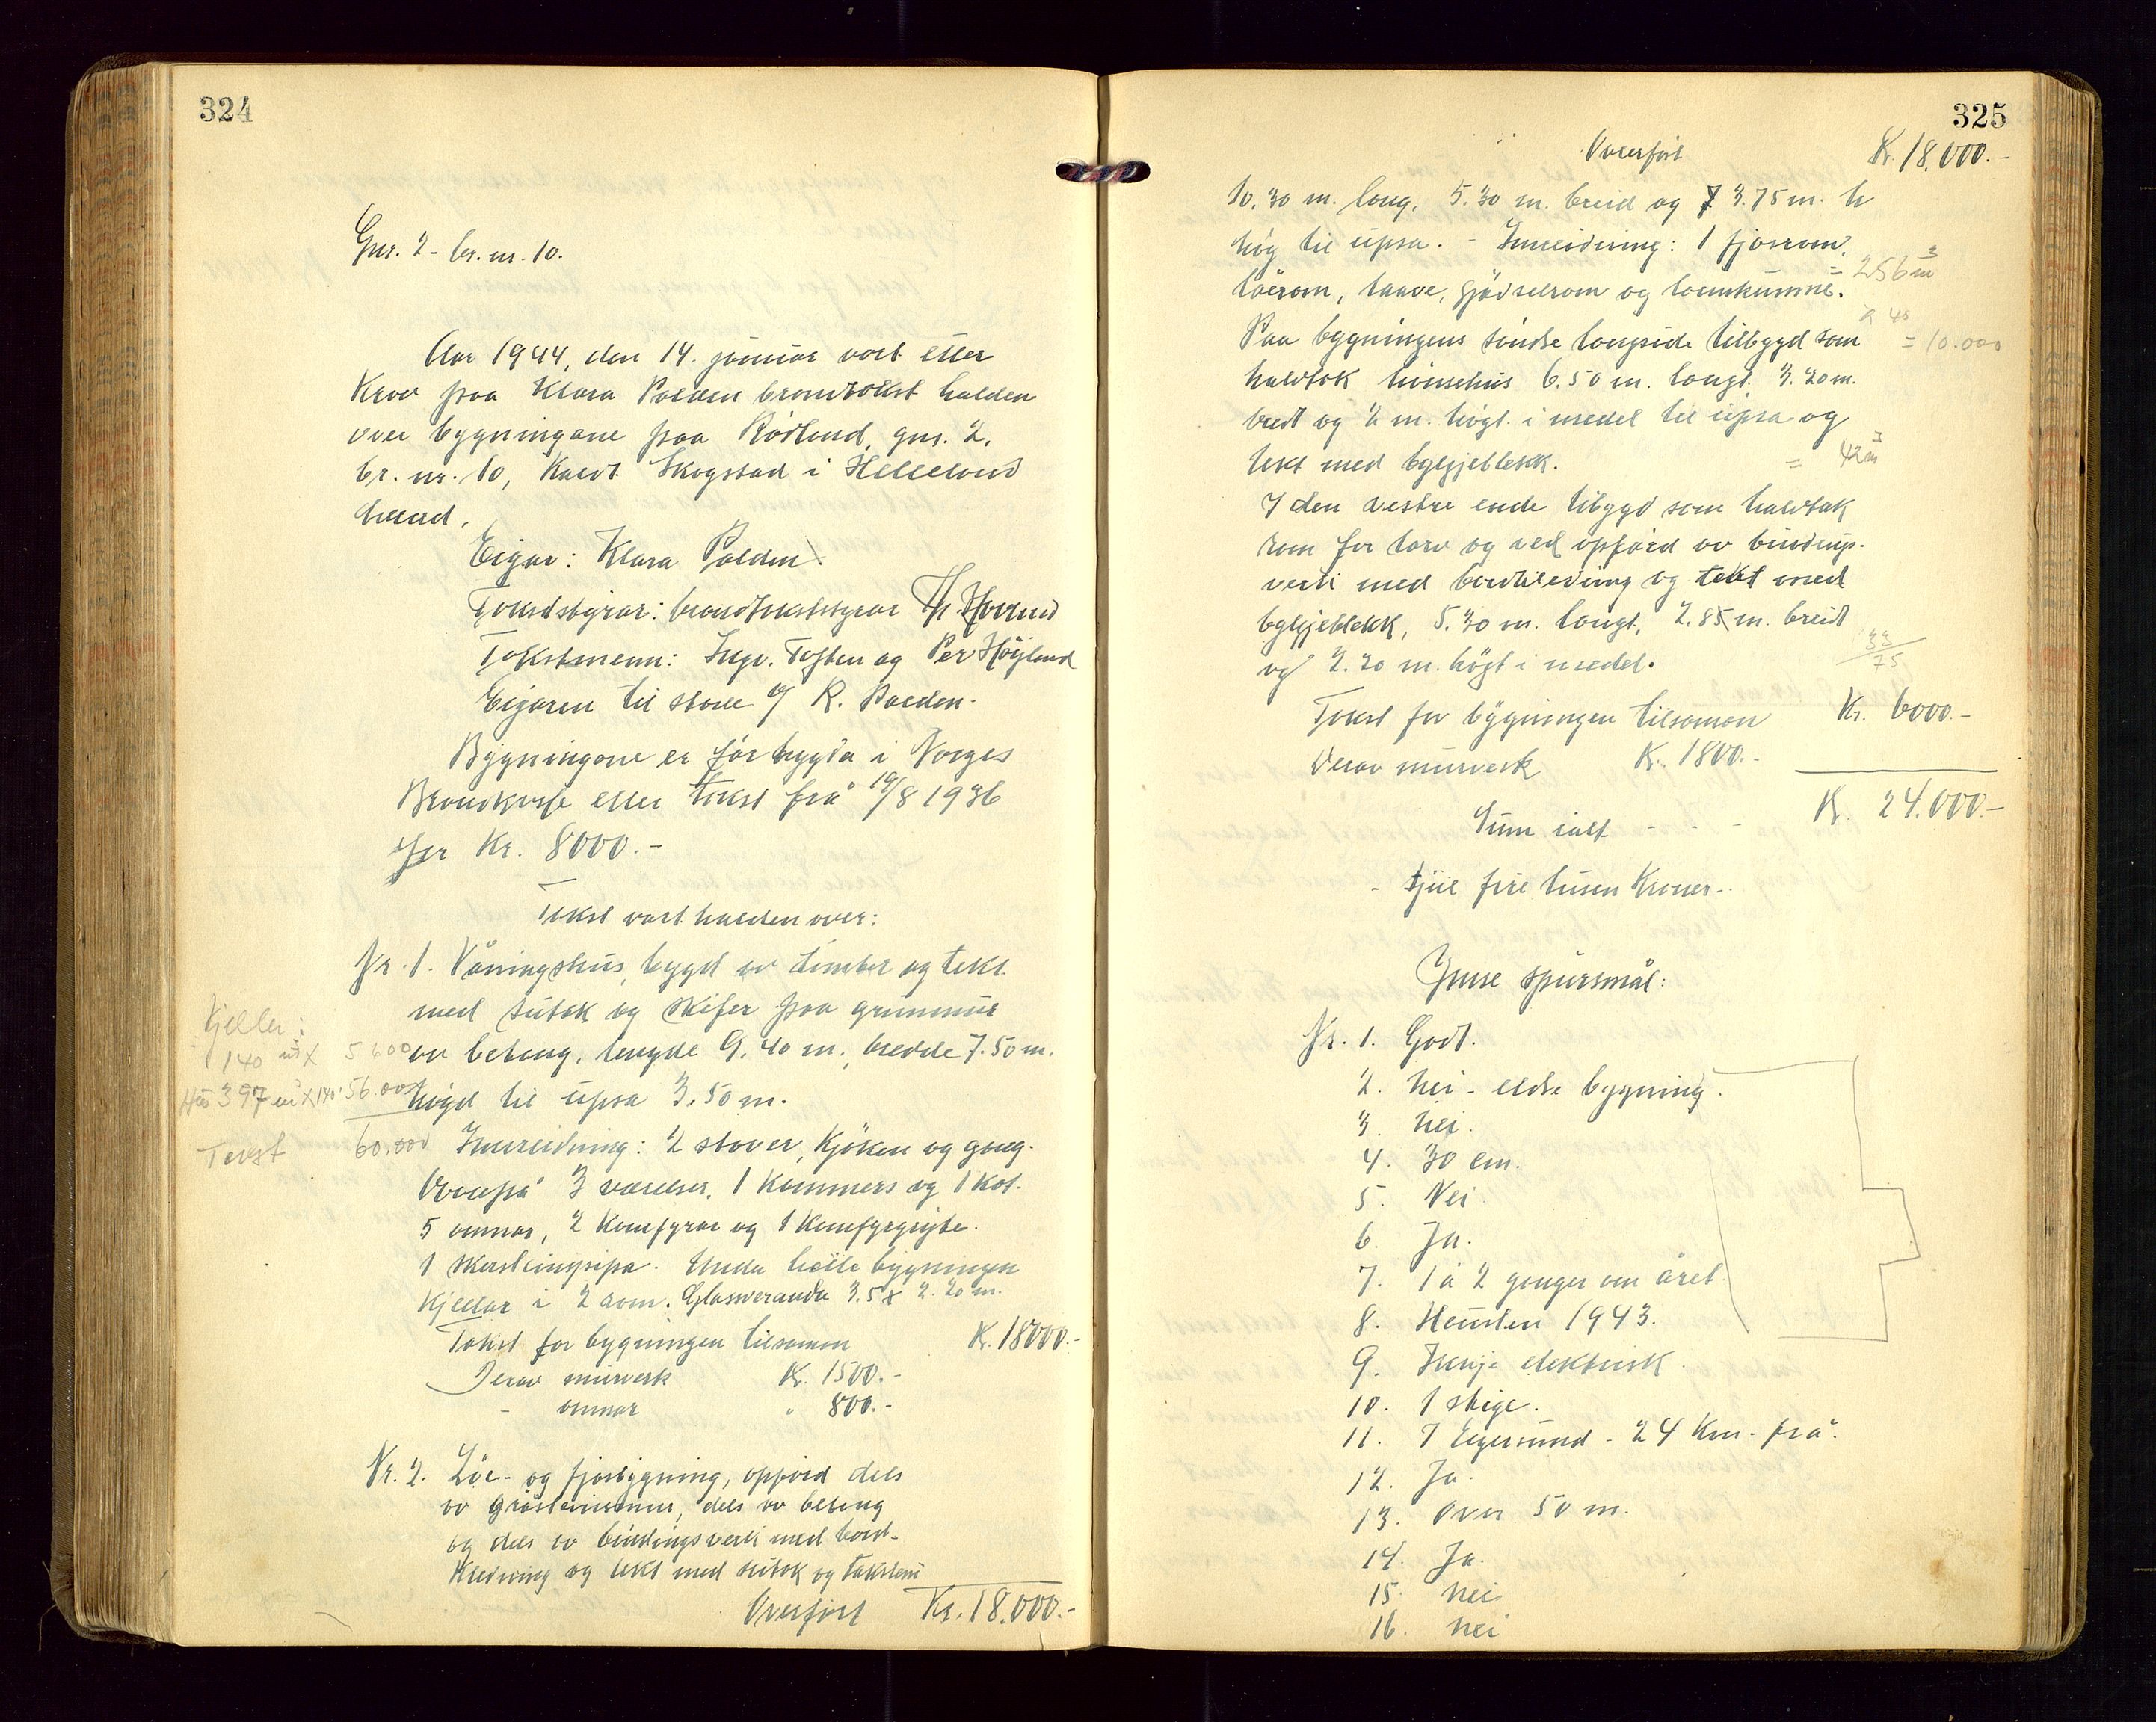 324
Gnr. 2 - br. nr. 10.
Aar 1944, den 14. januar vart etter
Krav paa Klara Polden brandtakst halden
over bygningane paa Rödland, gnr. 2,
br. nr. 10, Kaldt Skogstad i Helleland
herad.
Eigar: Klara Polden
Takststyrar: brandtakststyrar
Takstmenn: Ingv. Toften og Per Höyland
Eigaren til stade v/ R. Polden.
Bygningane er för trygda i Norges
Brandkasse etter takst frå 19/8 1936
for Kr. 8000.-
Takst vart halden over:
Nr. 1. Våningshus, bygd av timber og tekt
med sutak og skifer paa grunnmur
av betong, lengde 9.40 m., bredde 7.50 m.
högd til upsa 3.50 m.
Kjeller:
140 m³ x 5600
Hus 397 m³ x 140 56.000
Takst 60.000
Innreidning: 2 stover, Kjöken og gang.
Ovenpå 3 værelser, 1 Kammers og 1 Kot.
5 omnar, 2 Komfyrar og 1 Komfyrgryte.
1 skorsteinspipa. Under heile bygningen
Kjellar i 2 rom. Glasveranda 3.5 x 2.20 m.
Takst for bygningen tilsaman Kr. 18000.-
Derav murverk Kr. 1500.-
- omnar " 800.-
Nr. 2. Löe- og fjösbygning, oppförd dels
av gråsteinsmur, dels av betong
og dels av bindingsverk med bord-
Kledning og tekt med sutak og takstein
Overfört Kr. 18.000.-
325
Overfört Kr. 18.000.-
10.30 m. lang, 5.30 m. breid og 3.75 m. h
høg til upsa. - Innreidning: 1 fjösrom,
löerom, laave, gjödselrom og landkumme. = 256 m³
a 40
Paa bygningens söndre langside tilbygd som = 10.000
halvtak hönsehus 6.50 m. langt. 3.20 m.
bredt og 2 m. högt i medel til upsa og
tekt med bylgjeblekk. = 42 m³
I den vestre ende tilbygd som halvtak
rom for torv og ved oppförd av bindings-
verk med bordkledning og tekt med
bylgjeblekk, 5.30 m. langt, 2.85 m. breidt
og 2.20 m. högt i medel.
33
75
Takst for bygningen tilsaman Kr. 6000.-
Derav murverk Kr. 1800.-
Sum ialt - - - Kr. 24.000.-
- tjue fire tusen Kroner -.
Ymse spursmål:
Nr. 1. Godt.
2. Nei - eldre bygning.
3. Nei.
4. 30 cm.
5. Nei.
6. Ja.
7. 1 à 2 ganger om året.
8. Hausten 1943.
9. Ikkje elektrisk.
10. 1 stige.
11. I Egersund - 24 Km. frå.
12. Ja.
13. Over 50 m.
14. Ja.
15. Nei
16. Nei